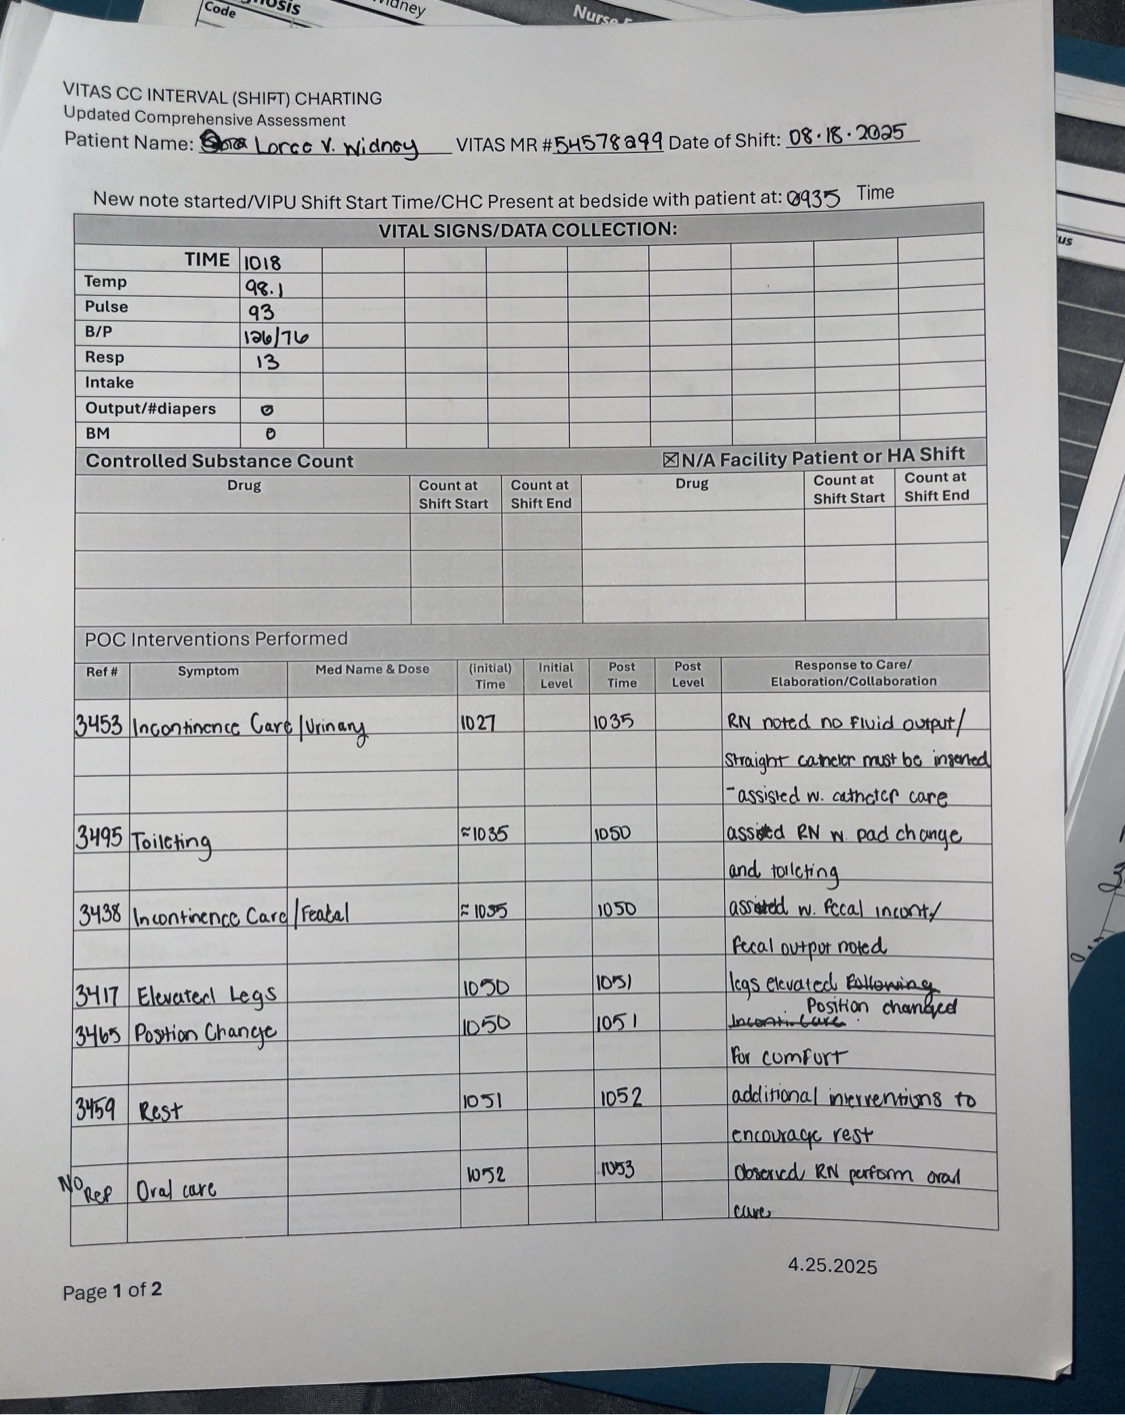 Code
Nurse
VITAS CC INTERVAL (SHIFT) CHARTING
Updated Comprehensive Assessment
Patient Name: Lorce V. Widney VITAS MR #54578299 Date of Shift: 08.18.2025
New note started/VIPU Shift Start Time/CHC Present at bedside with patient at: 0935 Time
VITAL SIGNS/DATA COLLECTION:
TIME 1018
Temp 98.1
Pulse 93
B/P 126/76
Resp 13
Intake
Output/#diapers 0
BM 0
Controlled Substance Count ☒N/A Facility Patient or HA Shift
Drug Count at Shift Start Count at Shift End Drug Count at Shift Start Count at Shift End
POC Interventions Performed
Ref # Symptom Med Name & Dose (initial) Time Initial Level Post Time Post Level Response to Care/ Elaboration/Collaboration
3453 Incontinence Care/Urinary 1027 1035 RN noted no fluid output/
straight cathetcr must be inserted
- assisted w. catheter care
3495 Toileting ≈1035 1050 assisted RN w. pad change
and toileting
3438 Incontinence Care/Featal ≈1035 1050 assisted w. fecal incont/
fecal output noted
3417 Elevated Legs 1050 1051 legs elevated Following
3465 Position Change 1050 1051 Inconti. Care. Position changed
for comfort
3459 Rest 1051 1052 additional interventions to
encourage rest
No Ref Oral care 1052 1053 Observed RN perform oral
care
4.25.2025
Page 1 of 2